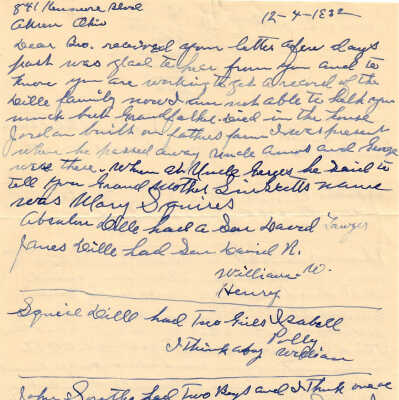 841 Kenmore Blvd
Akron Ohio
12-4-1932
Dear Bro. received your letter a few days
past was glad to hear from you and to
know you are working to get a record of the
Dille family now I am not able to help you
much but Grandfather died in the house
Jordan built on fathers farm I was present
when he passed away Uncle Amos and George
were there. When at Uncle Georges he said to
tell you Grand Mother name
was Mary Squires
Absalom Dille had a Son David Lawyer
James Dille had Son David R.
William W.
Henry
Squire Dille had Two Girls Isabell
Polly
I think a boy William
John had Two Boys and I think one